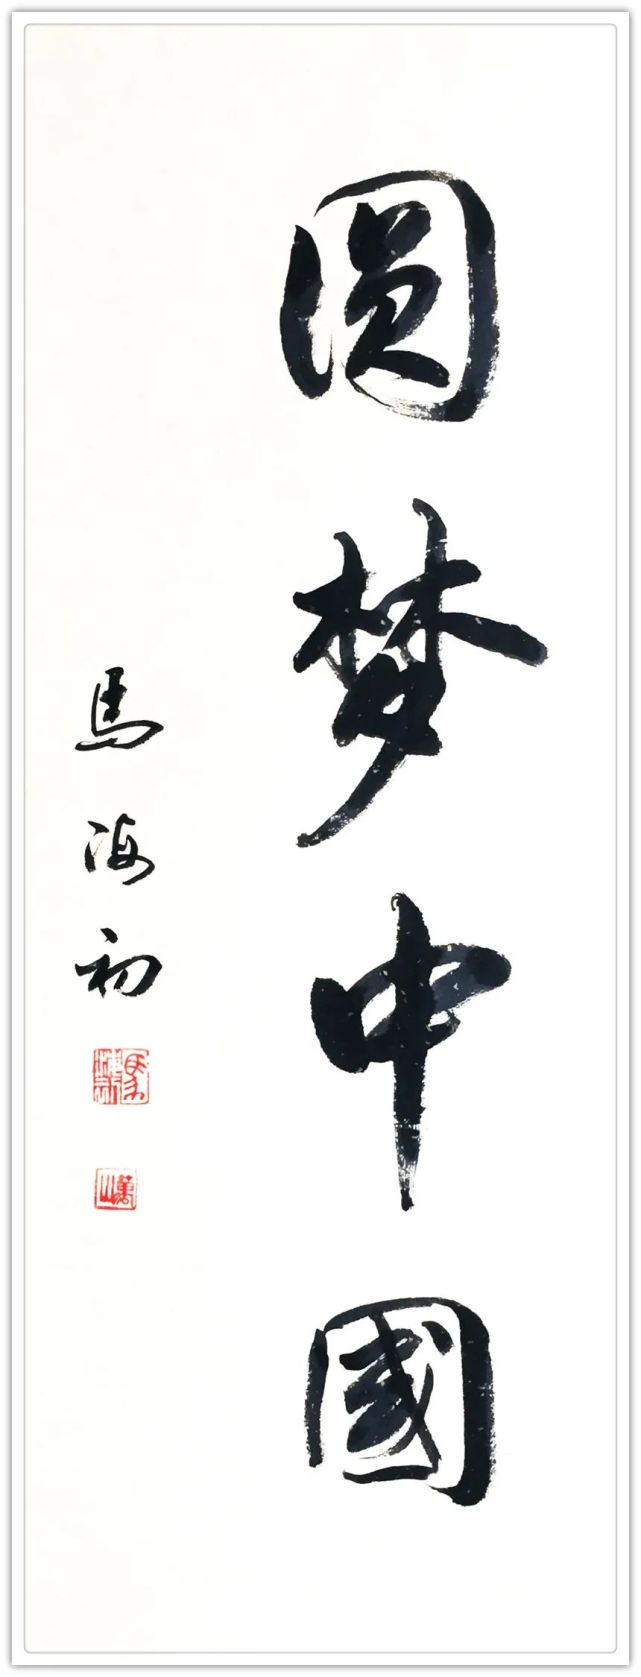 圓梦中國
馬海初